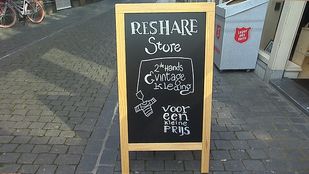 RESHARE
Store
2de Hands
& vintage
kleding
voor
een
kleine
PRIJS